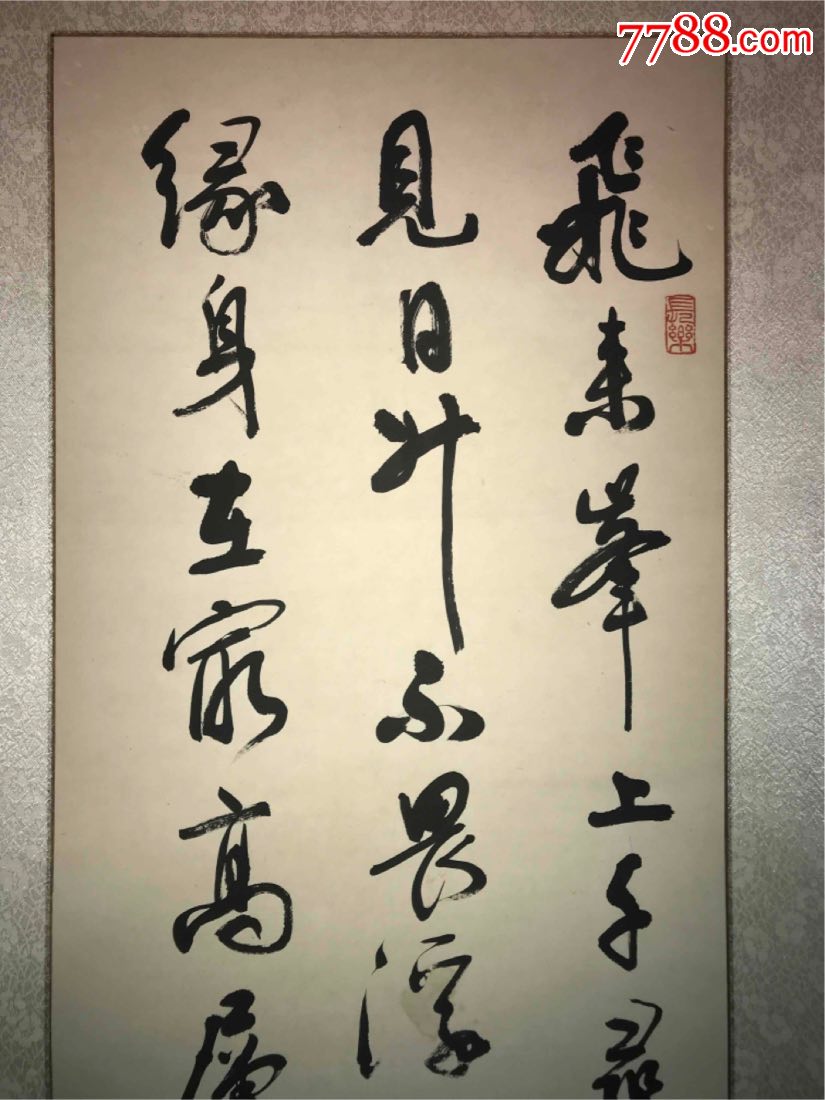 7788.com
飛来峯上千尋
見日升不畏浮
緣身在冣高層
長樂